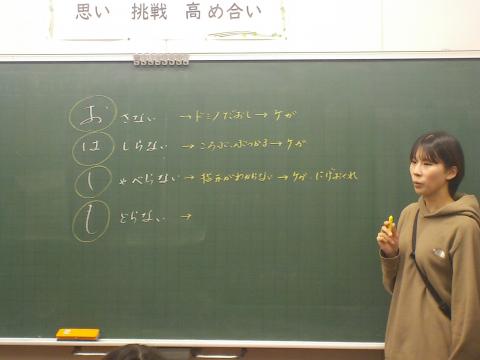 思い 挑戦 高め合い
おさない→ドミノだおし→ケガ
はしらない→ころぶ、ぶつかる→ケガ
しゃべらない→指示がわからない→ケガ、にげおくれ
しどらない→